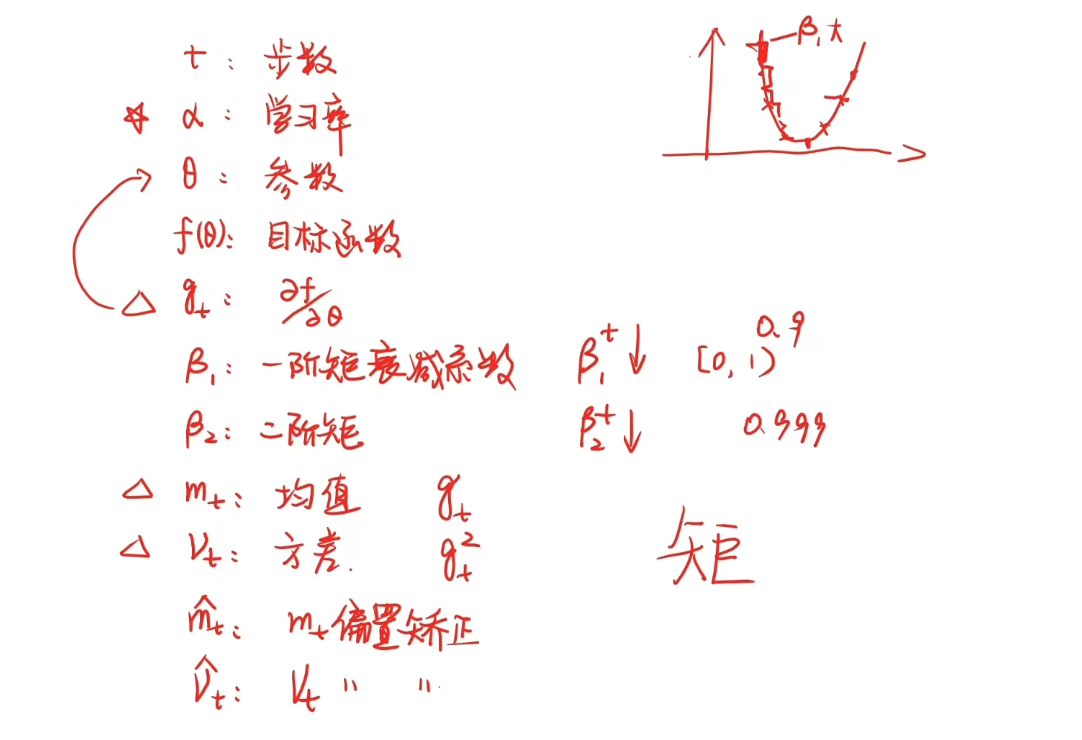 t: 步数
α: 学习率
θ: 参数
f(θ): 目标函数
g_t: ∂f/∂θ
β₁: 一阶矩衰减系数 β₁^t ↓ [0, 1) 0.9
β₂: 二阶矩 β₂^t ↓ 0.999
m_t: 均值 g_t
V_t: 方差. g_t^2
m̂_t: m_t 偏置矫正
V̂_t: V_t " "
β₁大
矩